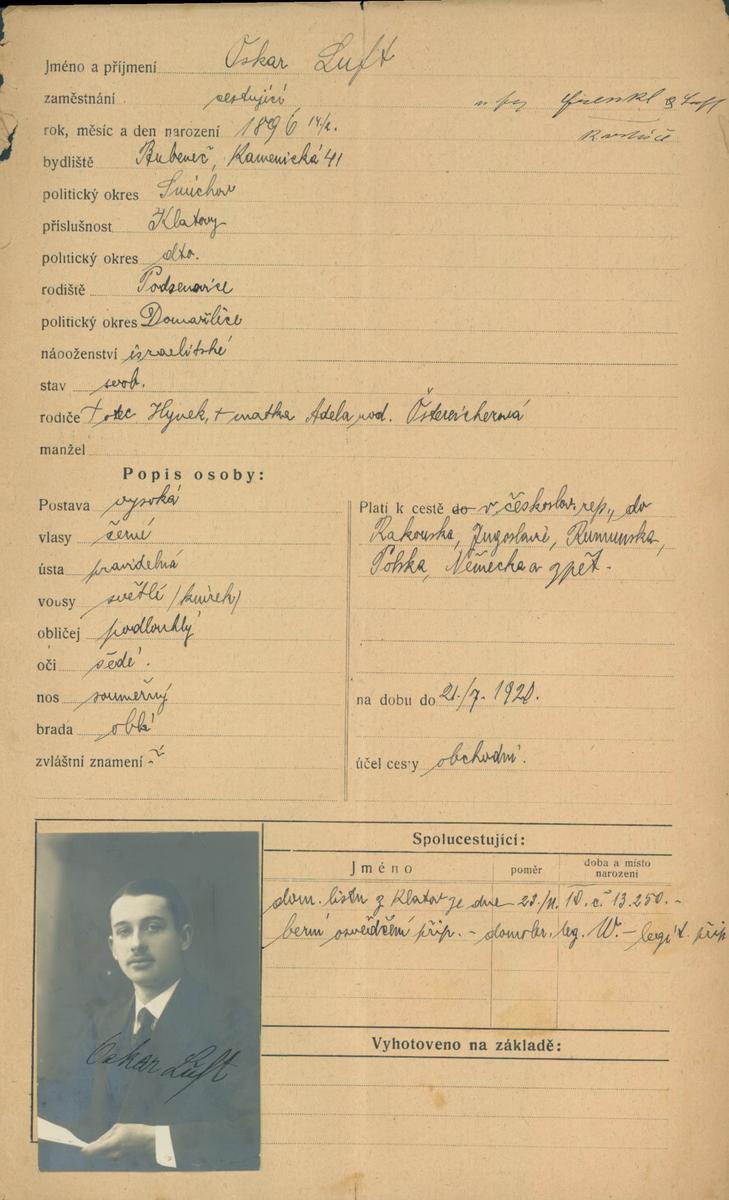 Jméno a příjmení Oskar Luft
zaměstnání cestující u fy Frenkl & Luft
rok, měsíc a den narození 1896 14/2.
bydliště Bubeneč, Kamenická 41
politický okres Smíchov
příslušnost Klatovy
politický okres dto.
rodiště
politický okres Domažlice
náboženství israelitské
stav svob.
rodiče † otec Hynek, † matka Adela rod. Östereicherová
manžel
Popis osoby:
Postava vysoká
vlasy černé
ústa pravidelná
vousy světlí (knírek)
obličej podlouhlý
oči šedé.
nos souměrný
brada oblá
zvláštní znamení
Platí k cestě do v českoslov. rep., do
Rakouska, Jugoslavie, Rumunska,
Polska, Německa a zpět.
na dobu do 21./7. 1920.
účel cesty obchodní.
Spolucestující:
Jméno poměr doba a místo narození
dom. listu z Klatov je dne 23./11. 10. č. 13.250. -
berní osvědčení přip. - domobr. leg. W. - legit. přip
Vyhotoveno na základě:
Oskar Luft